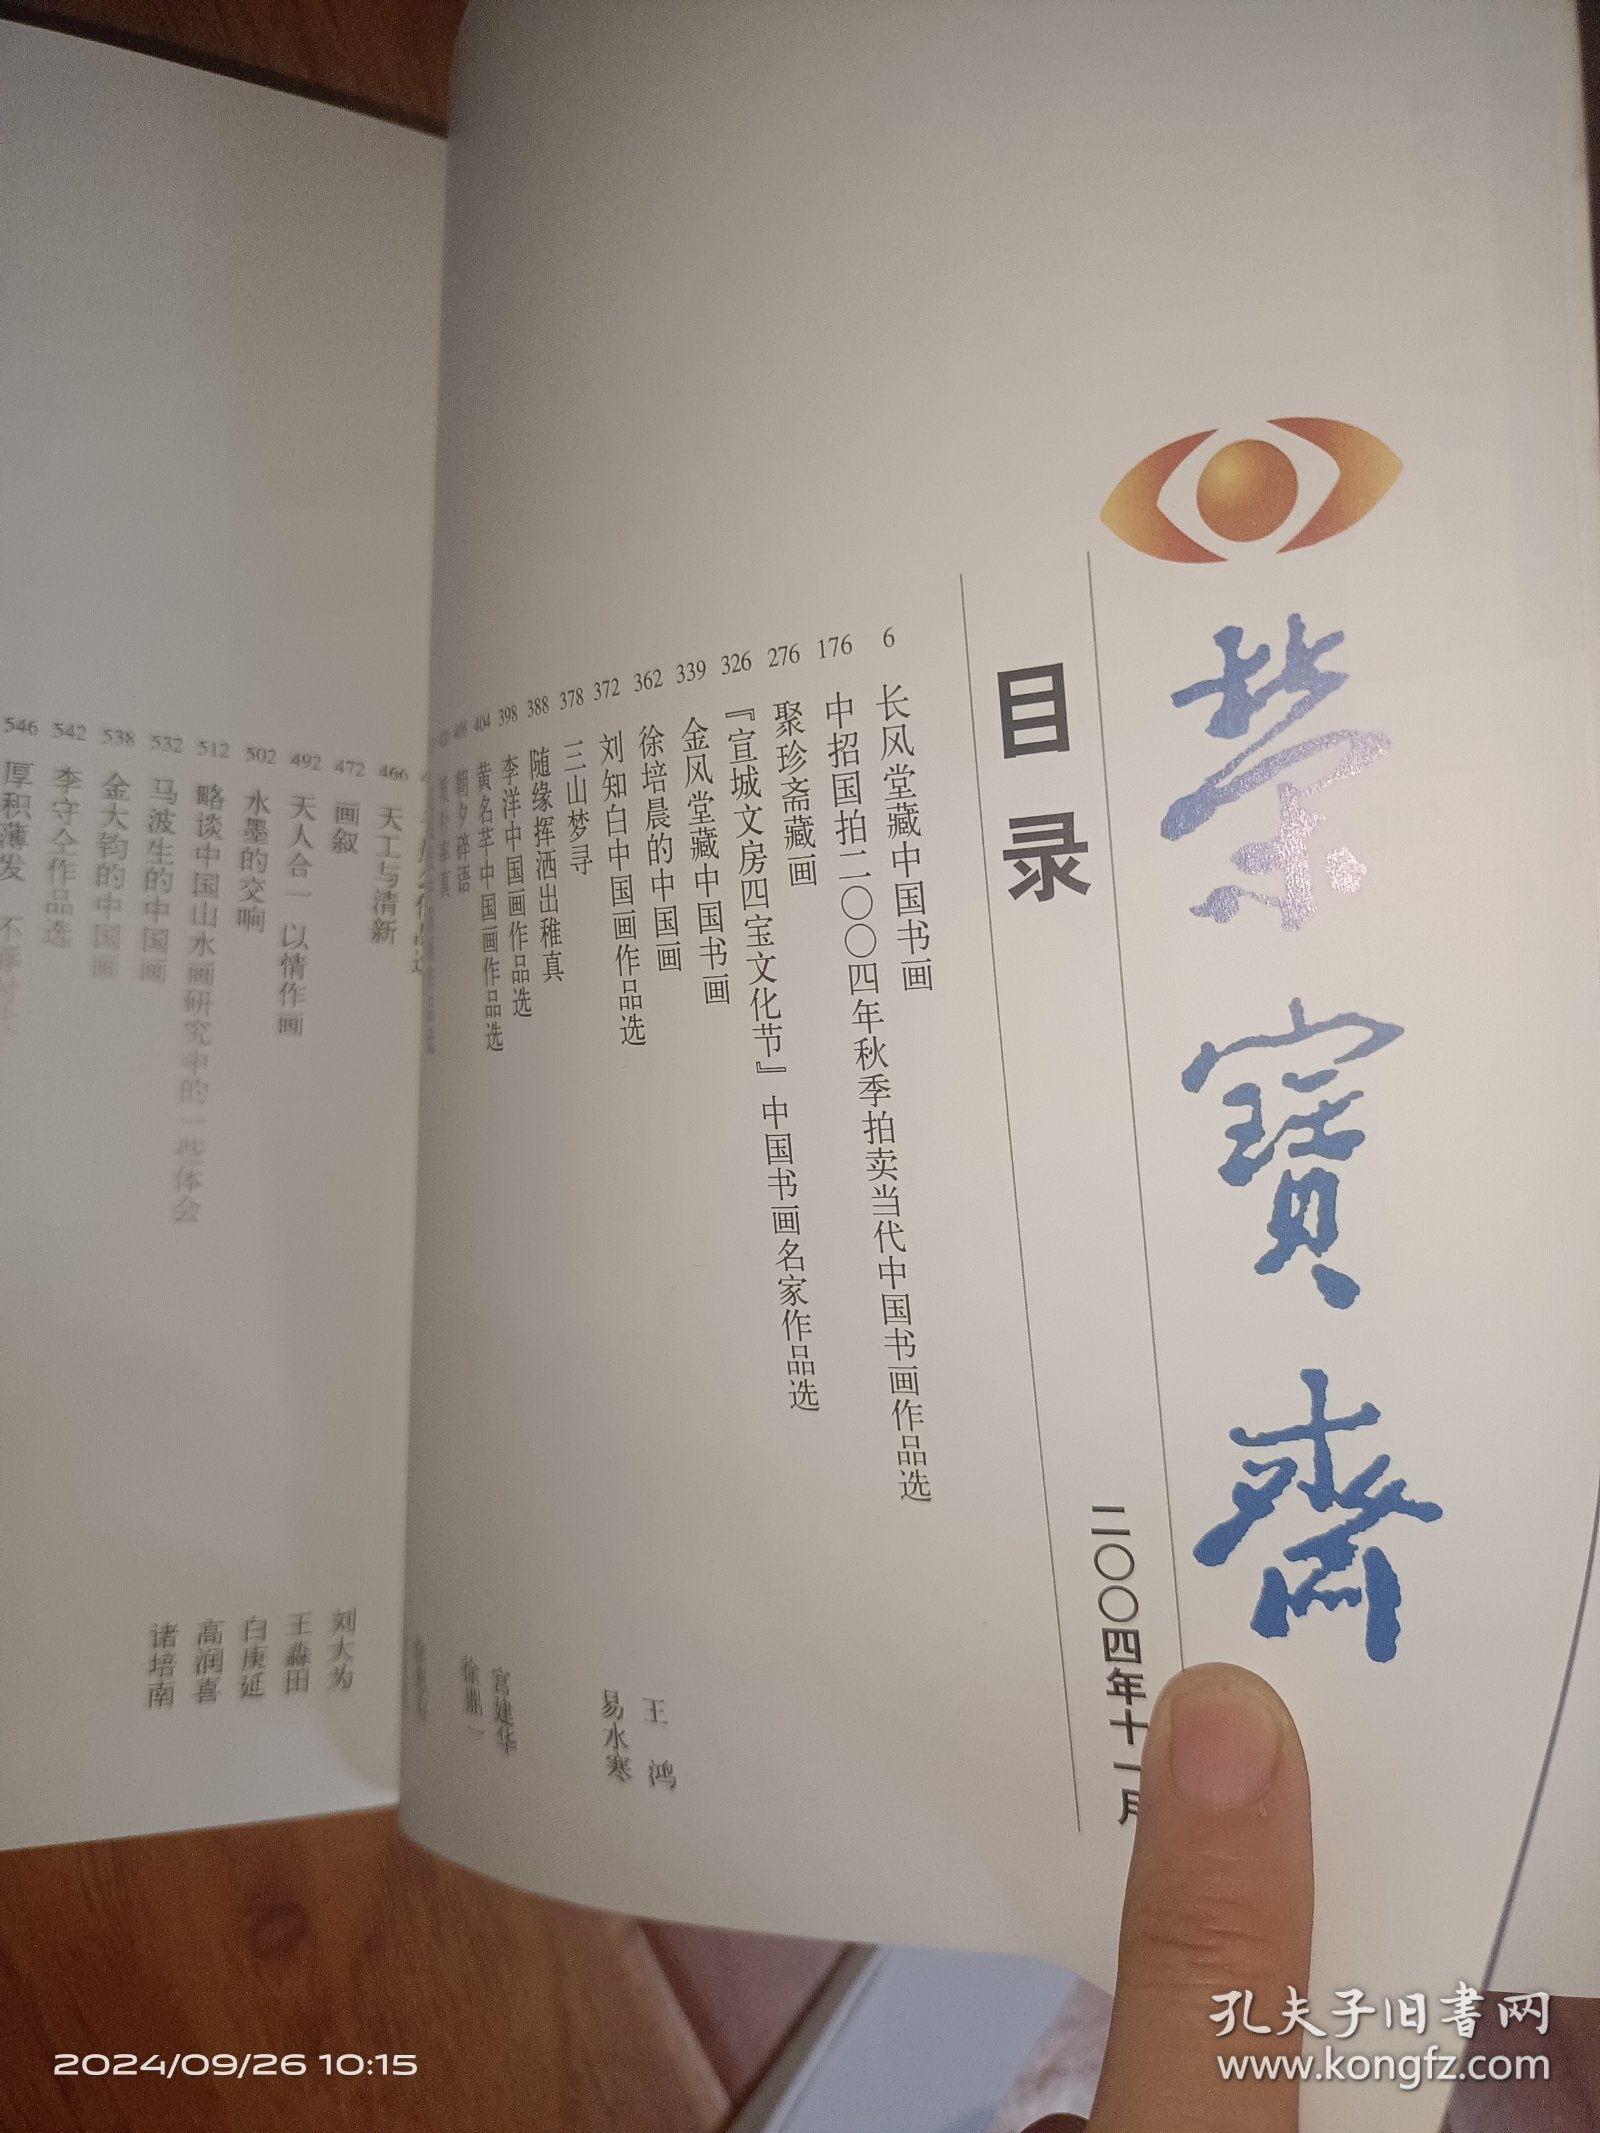 榮寶齋
二〇〇四年十一月
目录
6 长风堂藏中国书画
176 中招国拍二〇〇四年秋季拍卖当代中国书画作品选
276 聚珍斋藏画
326 『宣城文房四宝文化节』中国书画名家作品选
339 金风堂藏中国书画
362 徐培晨的中国画
372 刘知白中国画作品选
378 三山梦寻 王鸿
388 随缘挥洒出稚真 易水寒
398 李洋中国画作品选
404 黄名芊中国画作品选
408 朝夕辟语 宫建华
徐鼎一
466 天工与清新
472 画叙 刘大为
492 天人合一 以情作画 王森田
502 水墨的交响 白庚延
512 略谈中国山水画研究中的一些体会 高润喜
532 马波生的中国画 诸培南
538 金大钧的中国画
542 李守仝作品选
546 厚积薄发
孔夫子旧书网
www.kongfz.com
2024/09/26 10:15